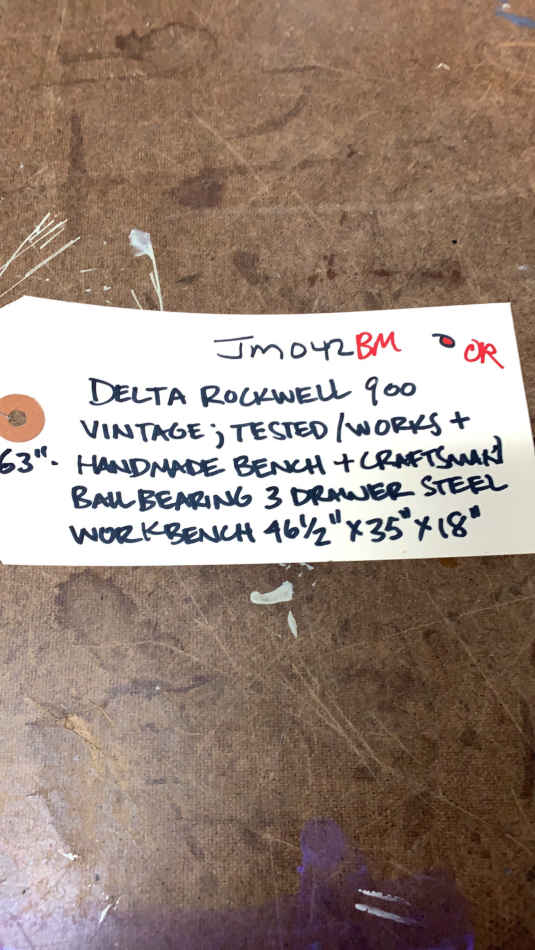 JM042BM OR
DELTA ROCKWELL 900
VINTAGE; TESTED/WORKS +
63". HANDMADE BENCH + CRAFTSMAN
BALL BEARING 3 DRAWER STEEL
WORKBENCH 46½" X 35" X 18"